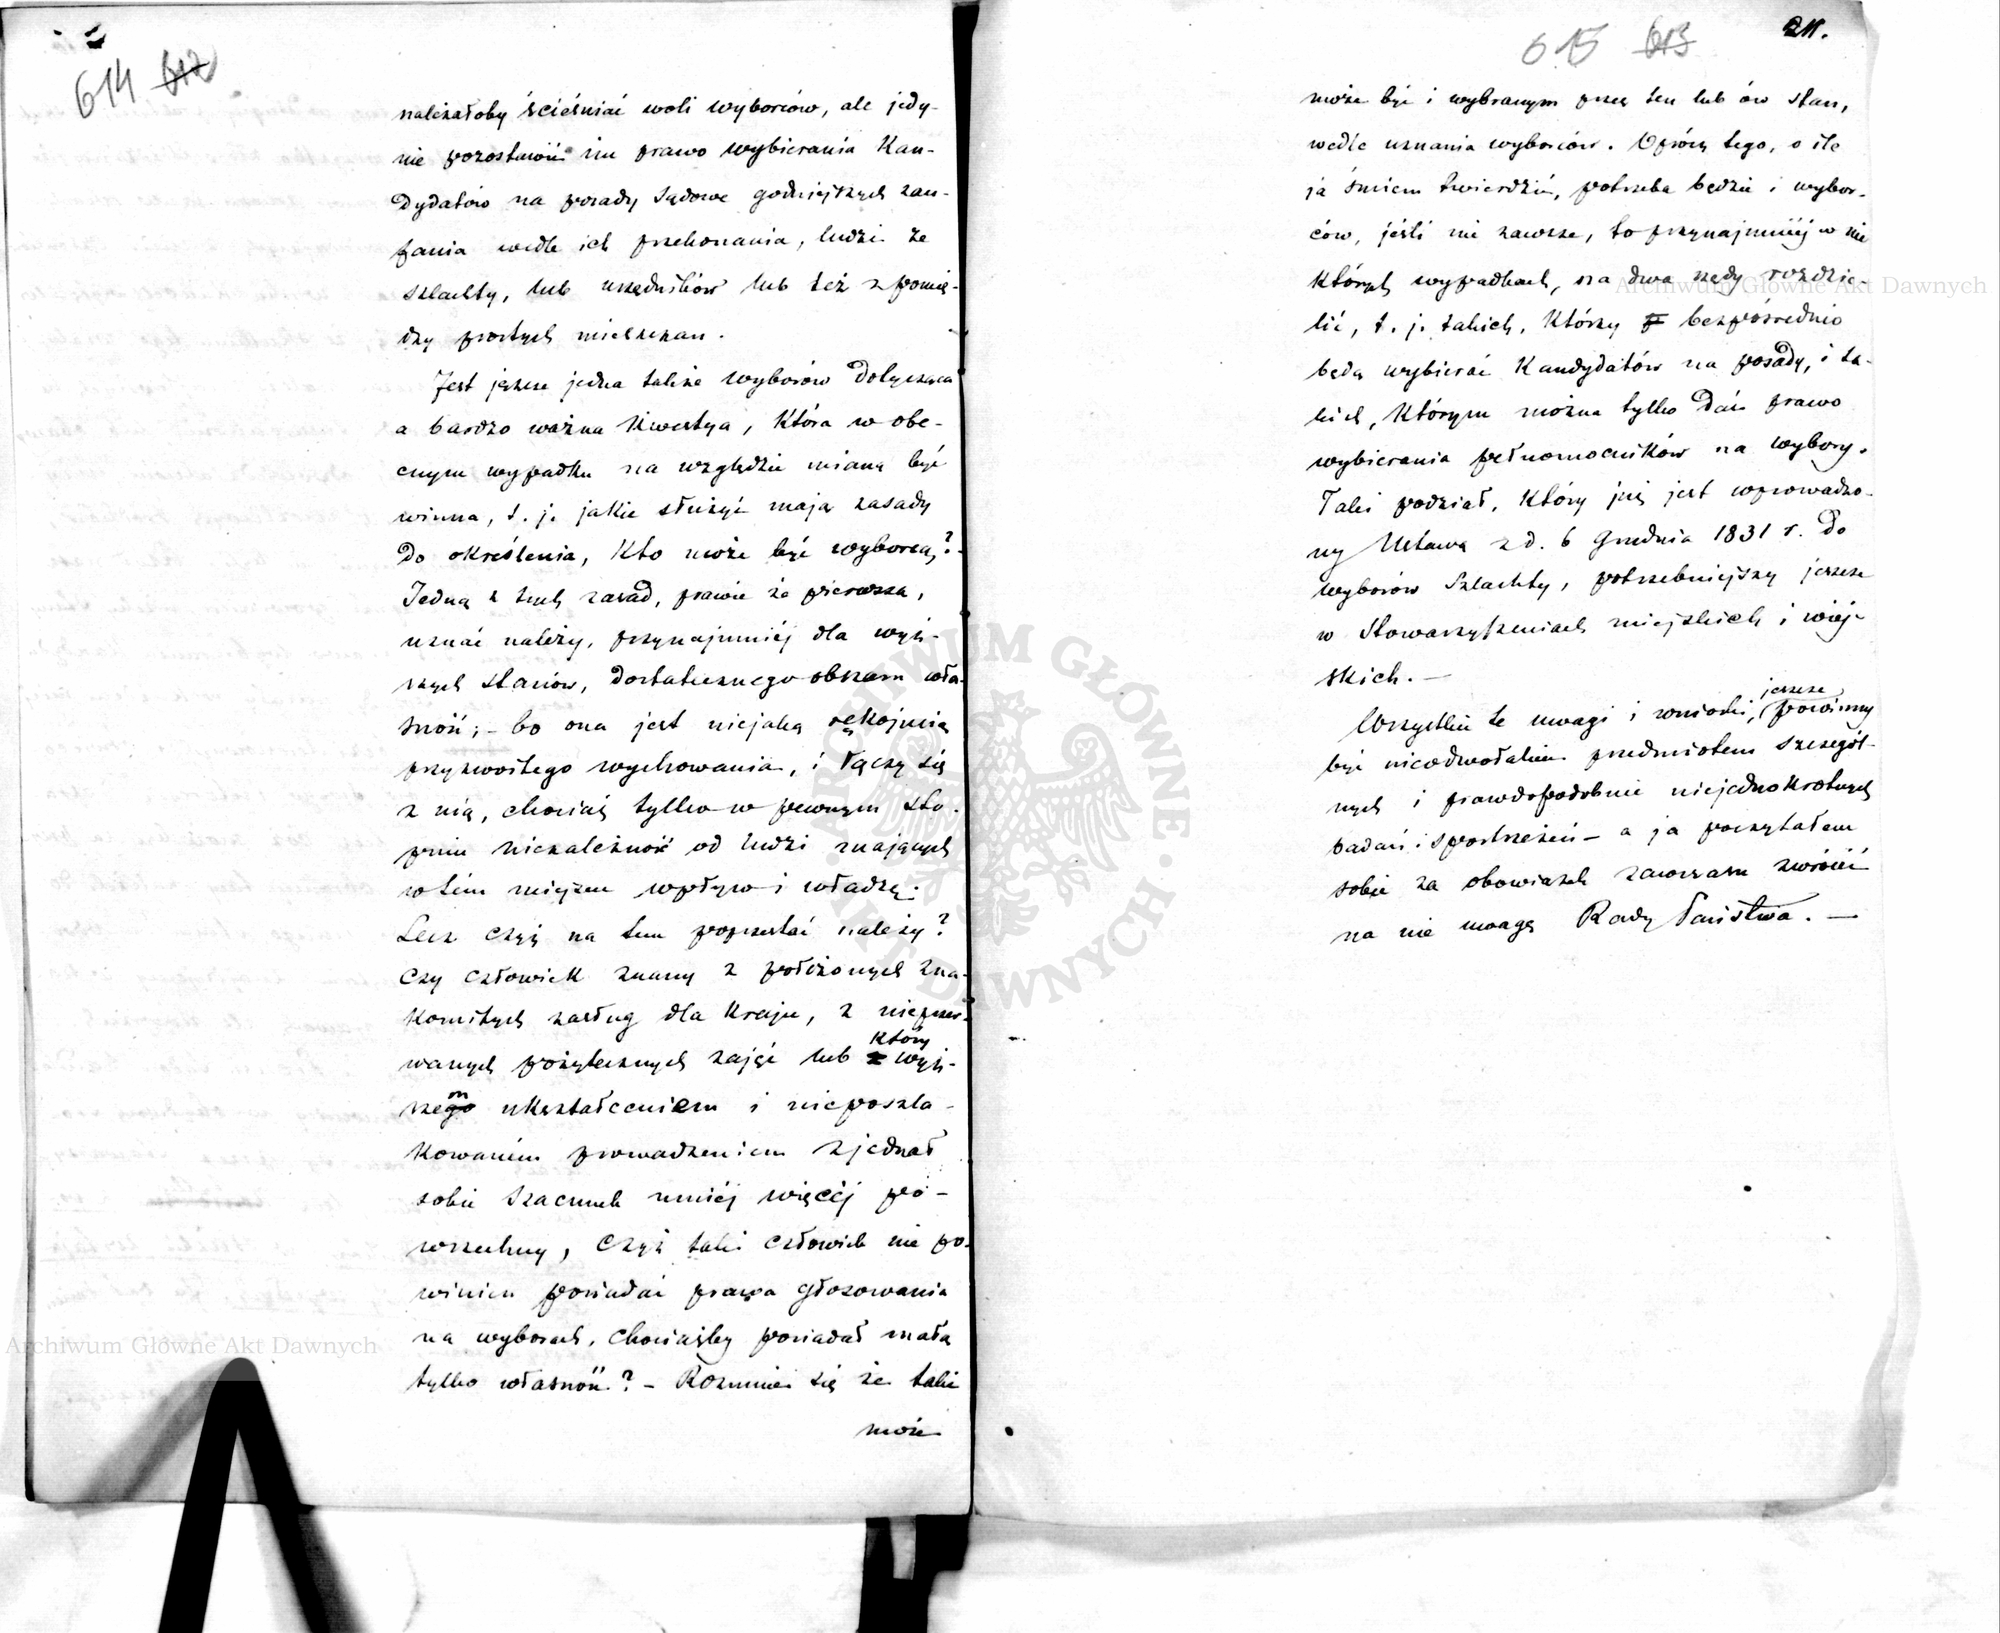 614 612
należałoby ścieśniać woli wyborców, ale jedy-
nie pozostawić im prawo wybierania Kan-
dydatów na posady sądowe godniejszych zau-
fania wedle ich przekonania, ludzi ze
szlachty, lub urzędników lub też z pomię-
dzy prostych mieszczan.
Jest jeszcze jedna także wyborów dotycząca
a bardzo ważna kwestya, która w obe-
cnym wypadku na względzie mianą być
winna, t. j. jakie służyć mają zasady
do określenia, kto może być wyborcą?
Jedną z tych zasad, prawie że pierwszą,
uznać należy, przynajmniéj dla wyż-
szych stanów, dostatecznego obszaru wła-
sność; - bo ona jest niejaką rękojmią
przyzwoitego wychowania, i łączy się
z nią, chociaż tylko w pewnym sto-
pniu niezależność od ludzi mających
w tém miejscu wpływ i władzę.
Lecz czyż na tem poprzestać należy?
Czy człowiek znany z położonych zna-
komitych zasług dla Kraju, z nieprzer-
wanych pożytecznych zajęć lub z który wyż-
szego m ukształceniem i nieposzla-
kowaném prowadzeniem zjednał
sobie szacunek mniéj więcéj po-
wszechny, czyż taki człowiek nie po-
winien posiadać prawa głosowania
na wyborach, chociażby posiadał małą
tylko własność? - Rozumie się że taki
może
615 613
21.
może być i wybranym przez ten lub ów stan,
wedle uznania wyborców. Oprócz tego, o ile
ja śmiem twierdzić, potrzeba będzie i wybor-
ców, jeśli nie zawsze, to przynajmniéj w nie
których wypadkach, na dwa rzędy rozdzie-
lić, t. j. takich, którzy bezpośrednio
będą wybierać Kandydatów na posady, i ta-
kich, którym można tylko dać prawo
wybierania pełnomocników na wybory.
Taki podział, który już jest wprowadzo-
ny Ustawą z d. 6 Grudnia 1831 r. do
wyborów Szlachty, potrzebniejszy jeszcze
w Stowarzyszeniach miejskich i wiej-
skich. -
Wszystkie te uwagi i wnioski, jeszcze powinny
być nieodwołalnie przedmiotem szczegół-
nych i prawdopodobnie niejednokrotnych
badań i spostrzeżeń - a ja poczytałem
sobie za obowiązek zawczasu zwrócić
na nie uwagę Rady Państwa. -
Archiwum Główne Akt Dawnych
Archiwum Główne Akt Dawnych
ARCHIWUM GŁÓWNE AKT DAWNYCH